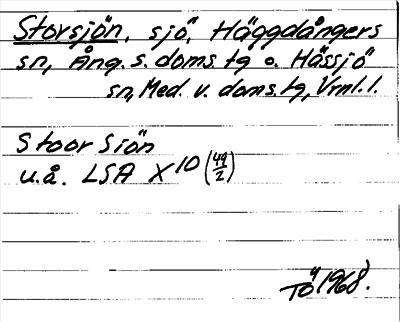 Storsjön, sjö, Häggdångers
sn, Ång. s. doms. tg o. Hässjö
sn, Med. v. doms. tg, Vrnl. l.
Stoor Siön
u.å. LSA X10 (44/2)
TÖ 1968.